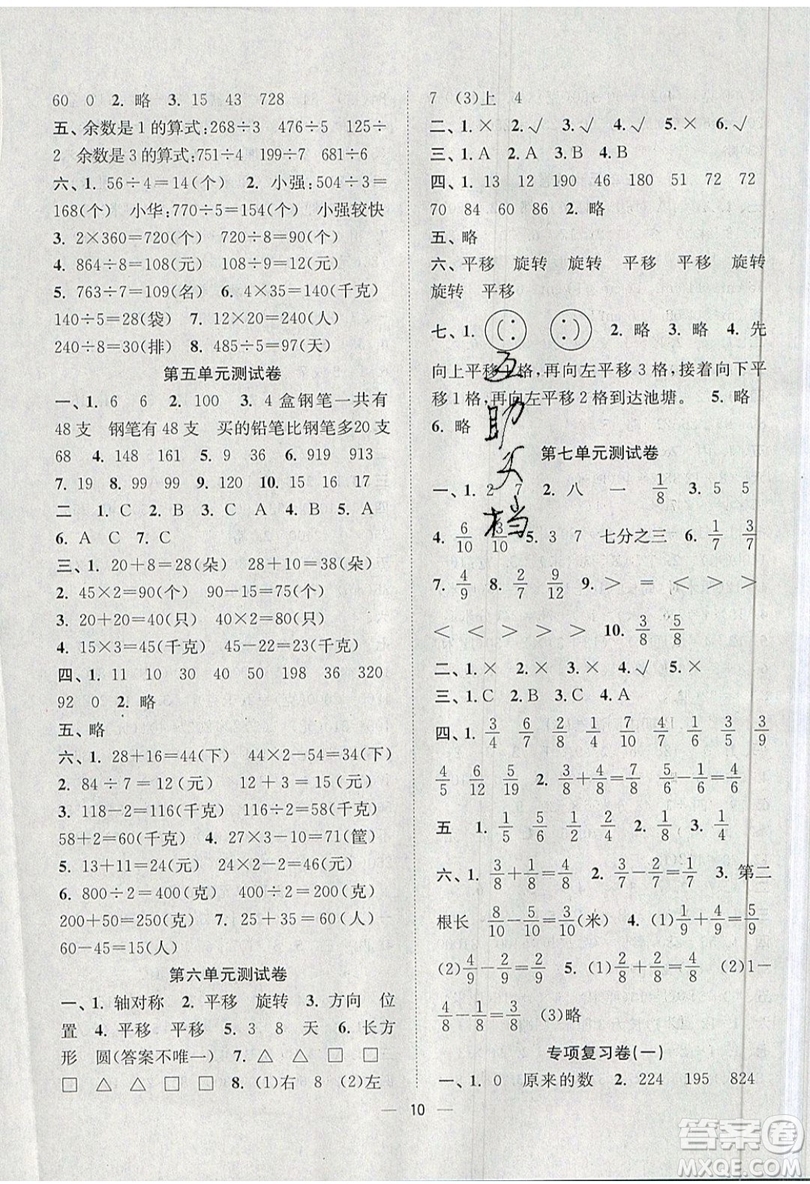 60 0 2. 略 3. 15 43 728
五、余数是1的算式:268÷3 476÷5 125÷
2 余数是3的算式:751÷4 199÷7 681÷6
六、1. 56÷4=14(个) 2. 小强:504÷3=
168(个) 小华:770÷5=154(个) 小强较快
3. 2×360=720(个) 720÷8=90(个)
4. 864÷8=108(元) 108÷9=12(元)
5. 763÷7=109(名) 6. 4×35=140(千克)
140÷5=28(袋) 7. 12×20=240(人)
240÷8=30(排) 8. 485÷5=97(天)
第五单元测试卷
一、1. 6 6 2. 100 3. 4盒钢笔一共有
48支 钢笔有48支 买的铅笔比钢笔多20支
68 4. 48 5. 9 6. 919 913
7. 19 8. 99 9. 120 10. 15 45
二 1. C 2. B 3. C 4. B 5. A
6. A C 7. C
三、1. 20+8=28(朵) 20+28=48(朵)
2. 45×2=90(个) 90-15=75(个)
3. 20+20=40(只) 40×2=80(只)
4. 15×3=45(千克) 45-22=23(千克)
四、1. 11 10 30 40 50 198 36 320
92 0 2. 略
五、略
六、1. 28+16=44(下) 44×2-54=34(下)
2. 84÷7=12(元) 12×3=36(元)
3. 118-2=116(千克) 116÷2=58(千克)
58+2=60(千克) 4. 27×3-10=71(筐)
5. 13+11=24(元) 24×2-22=26(元)
6. 800÷2=400(克) 400÷2=200(克)
200+50=250(克) 7. 25+35=60(大)
60-45=15(大)
第六单元测试卷
一、1. 轴对称 2. 平移 旋转 3. 方向 位
置 4. 平移 平移 5. 3 8 天 6. 长方
形 圆(答案不唯一) 7. △ △ △ △ □
□ □ □ △ □ 8. (1)右 8 (2)左
7 (3)上 4
二、1. × 2. √ 3. √ 4. √ 5. × 6. √
三、1. A 2. A 3. B 4. B
四、1. 13 12 190 46 180 51 72 72
70 84 60 86 2. 略
五、略
六、平移 旋转 旋转 平移 平移 旋转
旋转 平移
七、1. 2. 略 3. 略 4. 先
向上平移1格,再向左平移3格,接着向下平
移1格,再向左平移2格到达池塘。 5. 略
6. 略
第七单元测试卷
一、1. 2 7 2. 八 一 1/8 3. 5 5
4. 6/10 3/10 5. 3 7 七分之三 6. 1/7 3/7
7. 4/9 8. 2/7 9/12 9. > > = < > >
< < > > > 10. 3/8 5/8
二、1. × 2. × 3. × 4. √ 5. ×
三、1. C 2. B 3. C 4. A
四、1. 3/4 6/7 1/2 1/5 1/4 5/6 4/7 3/4
4/5 6/12 5/9 2. 3/8 = 3/8 1/6 < 4/6
五 1. 1/5 5/6 1/2 2/4 2. 1/8 1/5 1/7 1/6
六、1. 3/8+1/8=4/8 2. 3/7-2/7=1/7 3. 第二
根长 8/10-5/10=3/10(米) 4. (1)1/9+4/9=5/9
(2)4/9-2/9=2/9 5. (1)1/8+4/8=5/8 (2)
4/8-1/8=3/8 (3)略
专项复习卷(一)
一、1. 0 原来的数 2. 224 195 824
10
互
助
文
档
答案圈
MXQE.COM